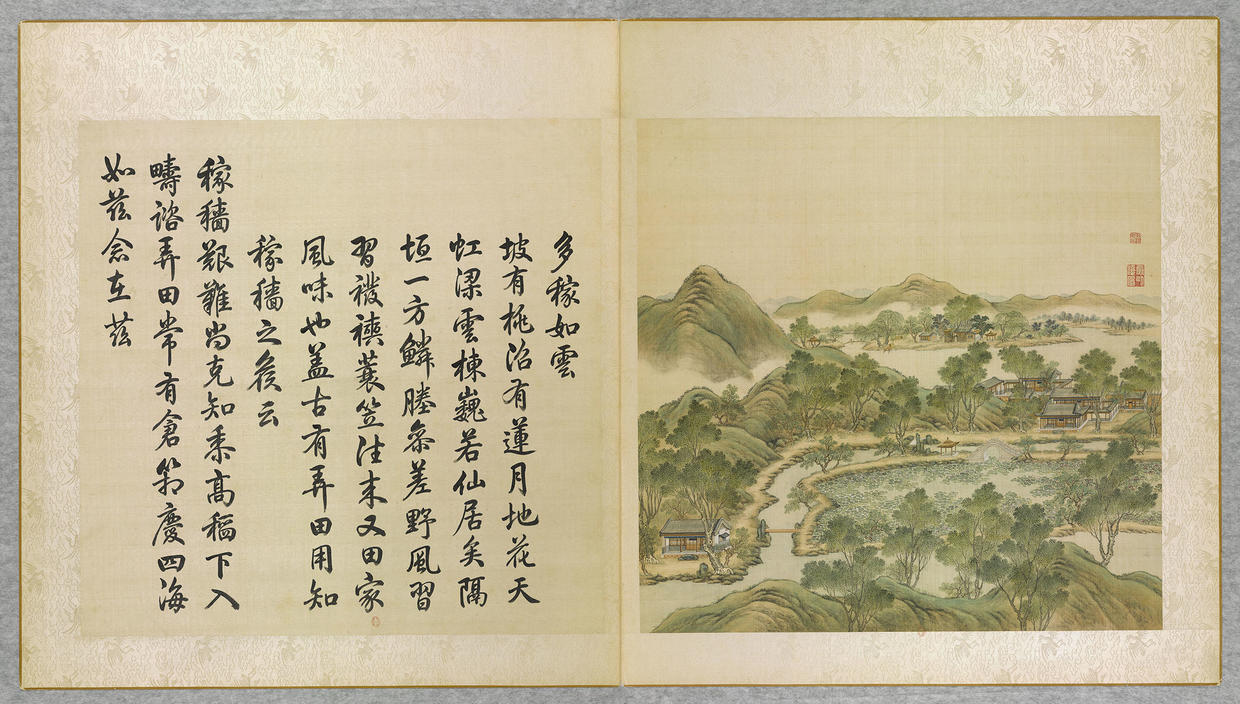 多稼如雲
坡有桃沼有蓮月地花天
虹梁雲棟巍若仙居矣隔
垣一方鱗塍參差野風習
習襏襫蓑笠往来又田家
風味也蓋古有弄田用知
稼穡之候云
稼穡艱難尚克知黍高稻下入
疇諮弄田常有倉箱慶四海
如茲念在茲